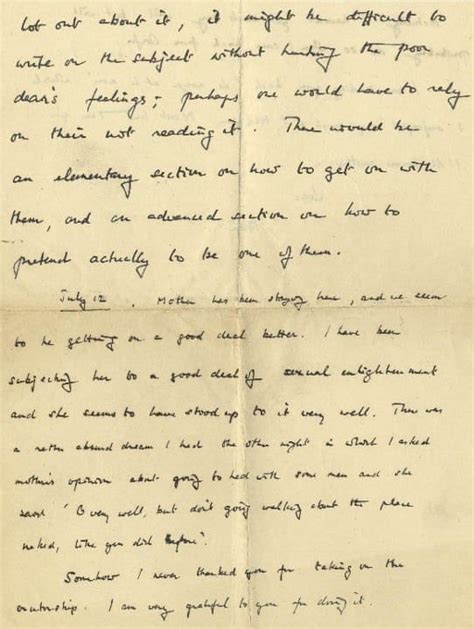 lot out about it, it might be difficult to
write on the subject without hurting the poor
dear's feelings; perhaps one would have to rely
on their not reading it. There would be
an elementary section on how to get on with
them, and an advanced section on how to
pretend actually to be one of them.
July 12. Mother has been staying here, and we seem
to be getting on a good deal better. I have been
subjecting her to a good deal of sexual enlightenment
and she seems to have stood up to it very well. There was
a rather absurd dream I had the other night in which I asked
mother's opinion about going to bed with some men and she
said 'O very well, but don't going walking about the place
naked, like you did before'.
Somehow I never thanked you for taking on the
executorship. I am very grateful to you for doing it.